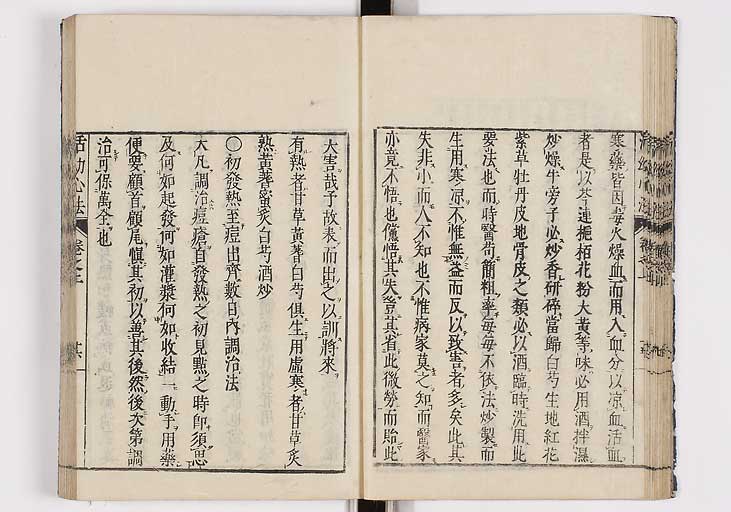 寒藥皆因毒火燥血而用入血分以凉血活血
者是以芩連梔柏花粉大黃等味必用酒拌濕
炒燥牛旁子必炒香研碎當歸白芍生地紅花
紫草牡丹皮地骨皮之類必以酒臨時洗用此
要法也而時醫苟簡粗率每每不依法炒製而
生用寒凉不惟無益而反以致害者多矣此其
失非小而人不知也不惟病家莫之知而醫家
亦竟不悟也儻悟其失豈其省此微勞而貽此
大害哉予故表而出之以訓將來
有熱者甘草黃蓍白芍俱生用虛寒者甘草炙
熟黃蓍蜜炙白芍酒炒
○初發熱至痘出齊數日內調治法
大凡調治痘瘡自發熱之初見點之時卽須思
及何如起發何如灌漿何如收結一動手用藥
便要顧首顧尾慎其初以善其後然後次第調
治可保萬全也
活幼心法 卷之上 其